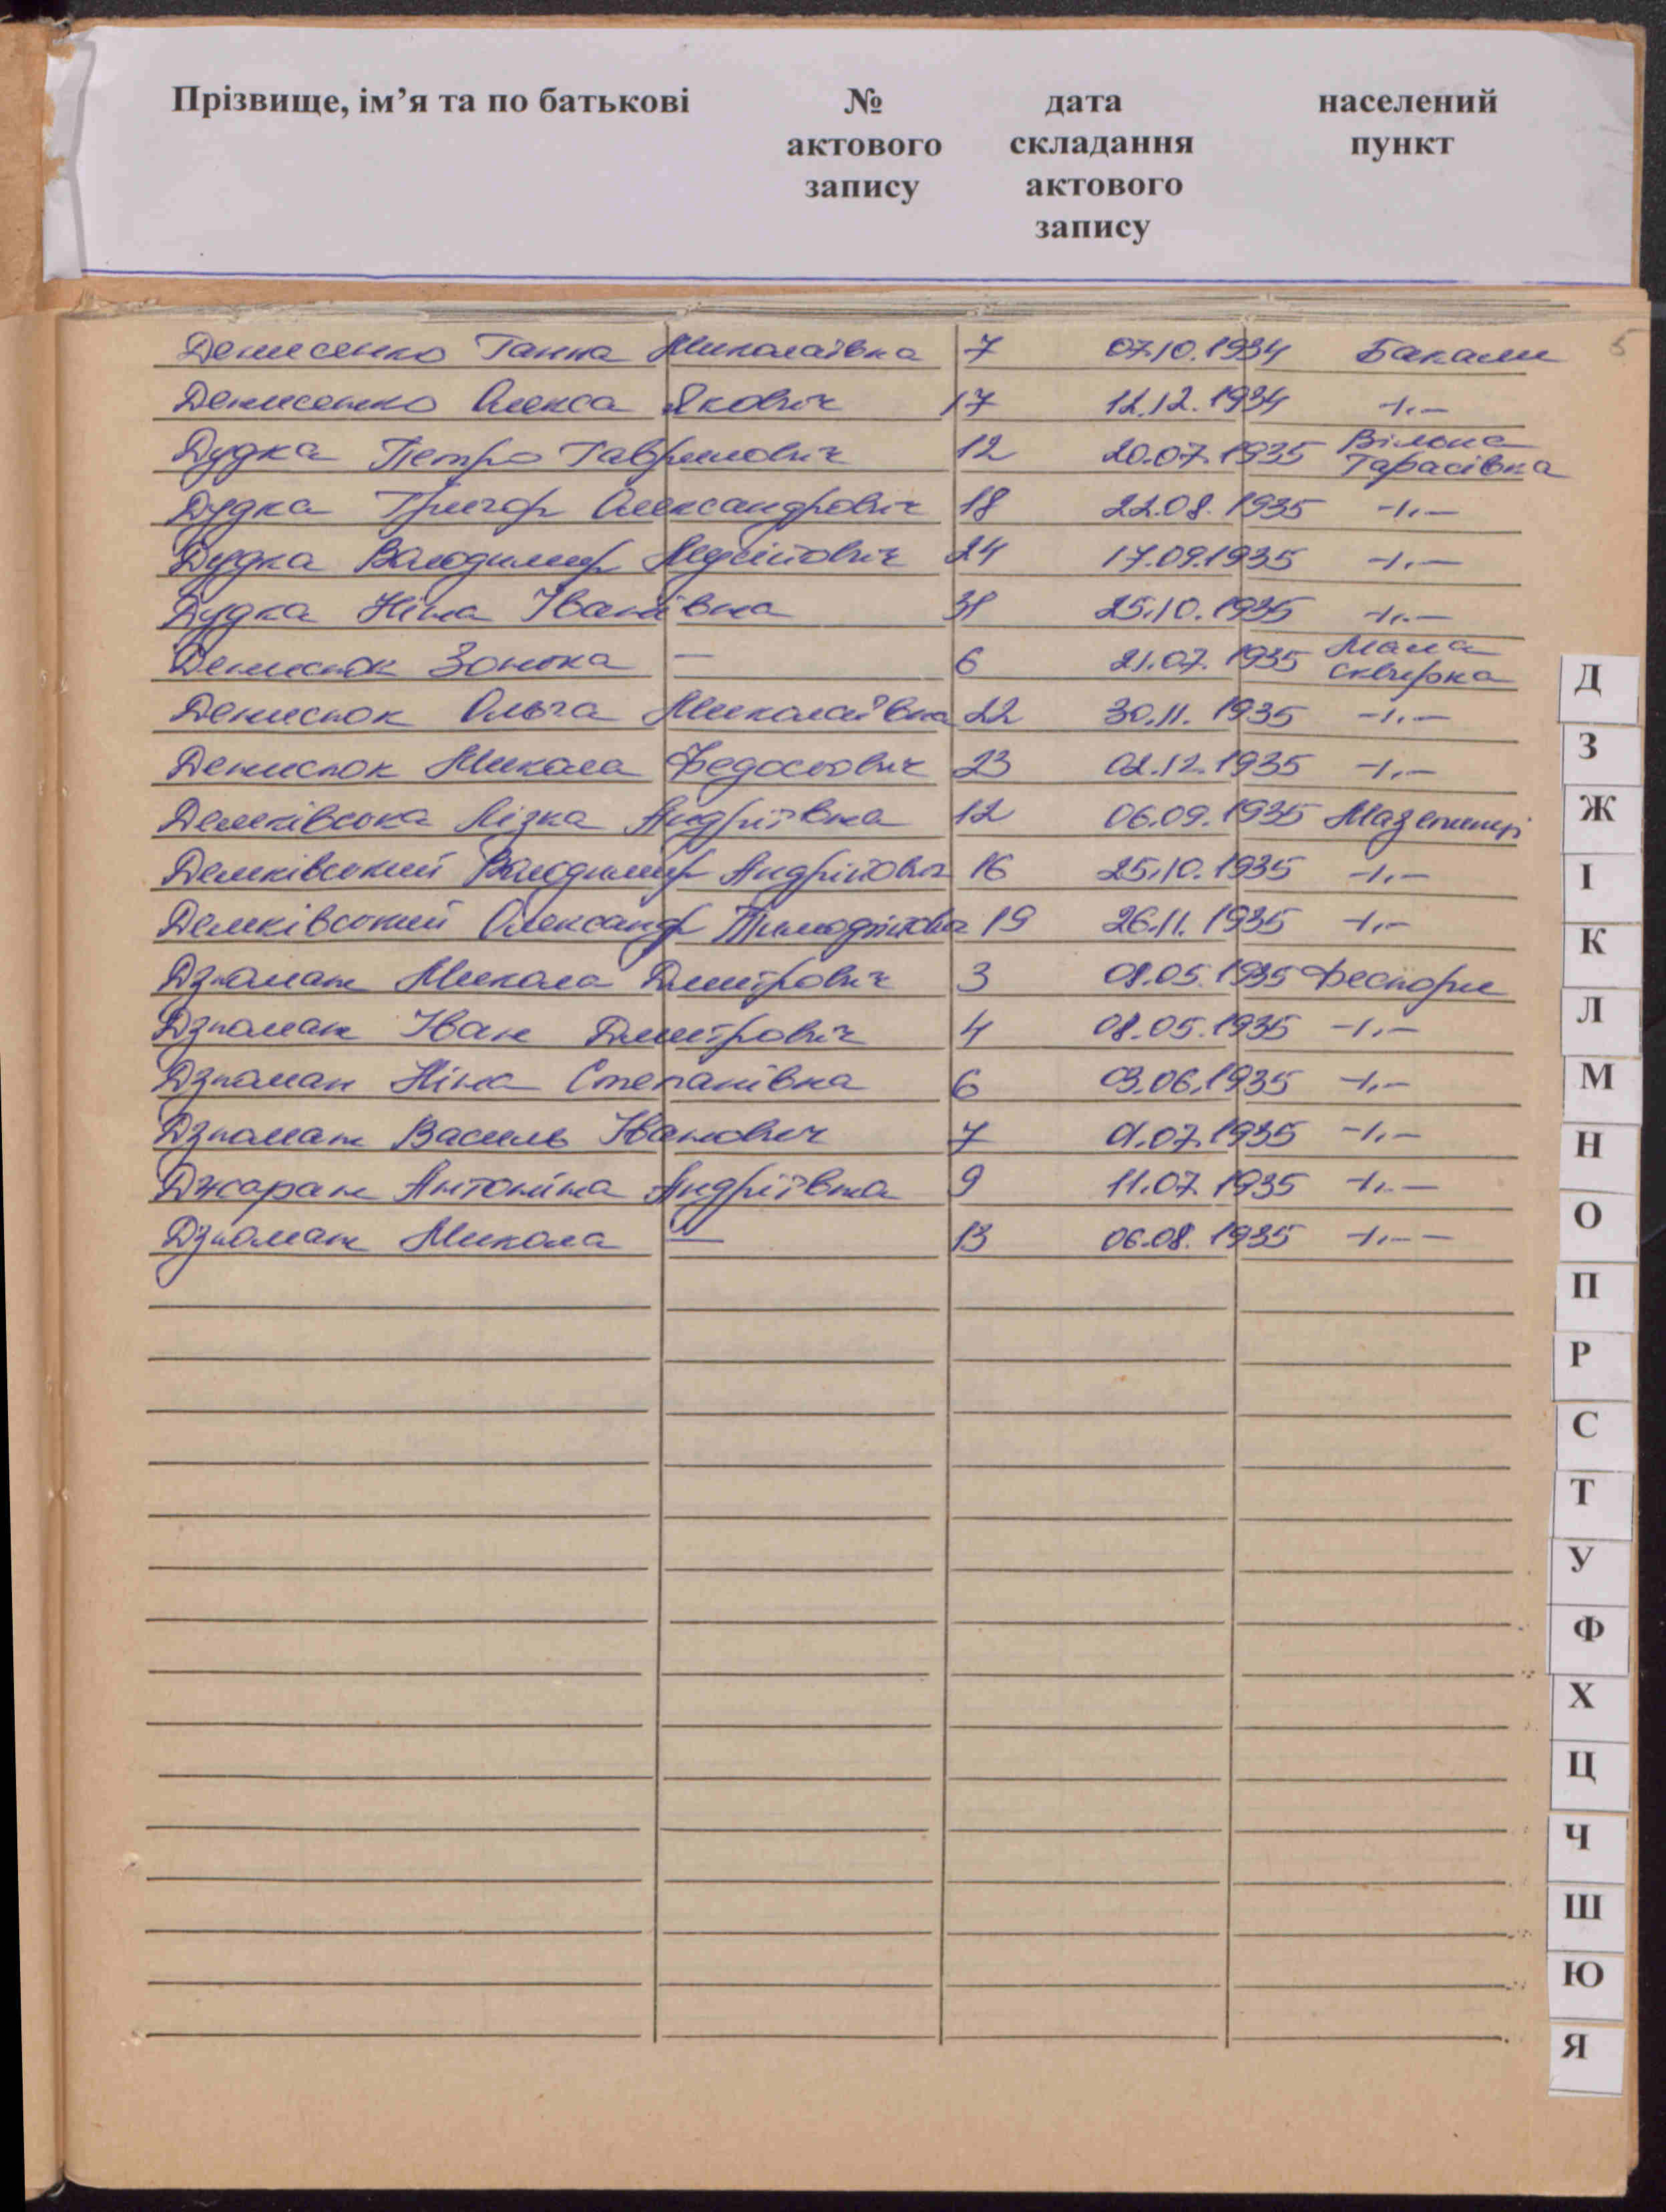 Прізвище, ім’я та по батькові № актового запису дата складання актового запису населений пункт
5
Денисенко Ганна Миколаївна 7 07.10.1934 Бакали
Денисенко Олекса Якович 17 12.12.1934 -"-
Дудка Петро Гаврилович 12 20.07.1935 Вільна Тарасівка
Дудка Григор Олександрович 18 22.08.1935 -"-
Дудка Володимир 24 17.09.1935 -"-
Дудка Ніна Іванівна 31 25.10.1935 -"-
Денисюк Зонька — 6 21.07.1935 Мала Сквирка
Денисюк Ольга Миколаївна 22 30.11.1935 -"-
Денисюк Микола Федосович 23 02.12.1935 -"-
Демківська Лізка Андріївна 12 06.09.1935 Мазепинці
Демківський Володимир Андрійович 16 25.10.1935 -"-
Демківський Олександр Тимофійович 19 26.11.1935 -"-
Дзюман Микола Дмитрович 3 08.05.1935 Феснори
Дзюман Іван Дмитрович 4 08.05.1935 -"-
Дзюман Ніна Степанівна 6 03.06.1935 -"-
Дзюман Василь Іванович 7 01.07.1935 -"-
Джаран Антоніна Андріївна 9 11.07.1935 -"-
Дзюман Микола — 13 06.08.1935 -"-
Д
З
Ж
І
К
Л
М
Н
О
П
Р
С
Т
У
Ф
Х
Ц
Ч
Ш
Ю
Я